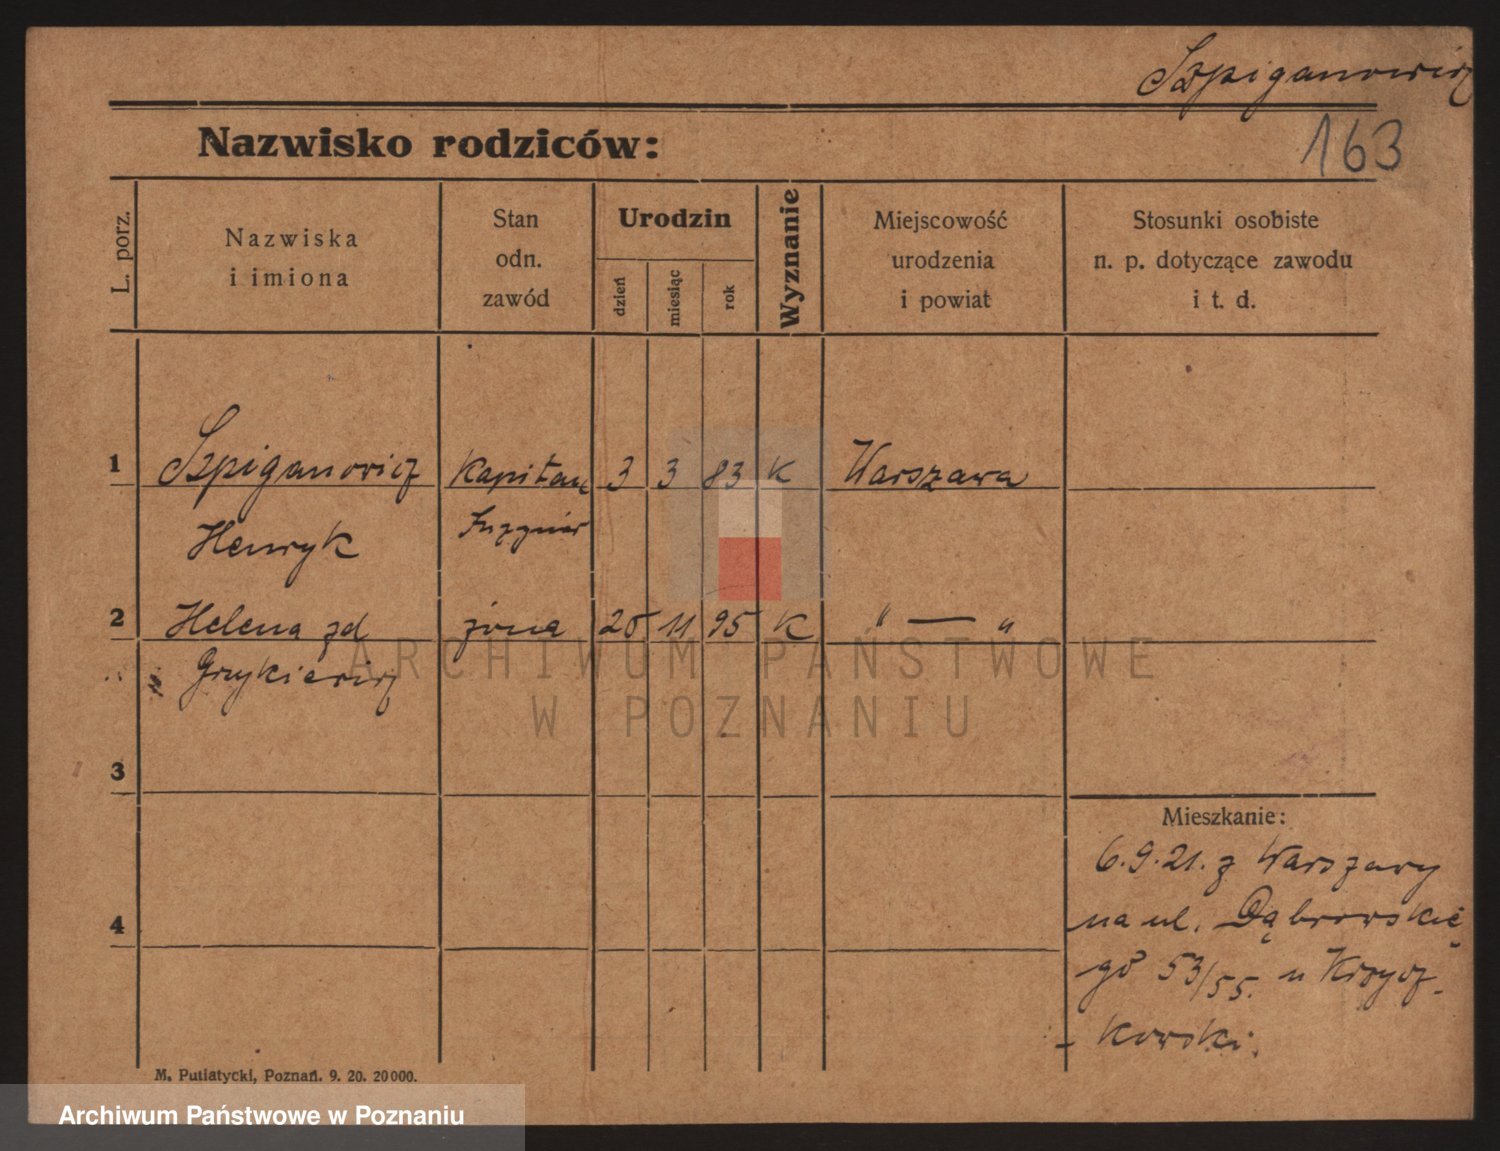 Szpiganowicz
163
Nazwisko rodziców:
L. porz.
Nazwiska
i imiona
Stan
odn.
zawód
Urodzin
dzień
miesiąc
rok
Wyznanie
Miejscowość
urodzenia
i powiat
Stosunki osobiste
n. p. dotyczące zawodu
i t. d.
1 Szpiganowicz kapitan 3 3 83 K Warszawa
Henryk
2 Helena zd żona 11 95 K " — "
3
4
Mieszkanie:
6.9.21. z Warszawy
na ul. Dąbrowskie
go 53/55. u
kowski.
M. Putiatycki, Poznań. 9. 20. 20000.
ARCHIWUM PAŃSTWOWE
W POZNANIU
Archiwum Państwowe w Poznaniu